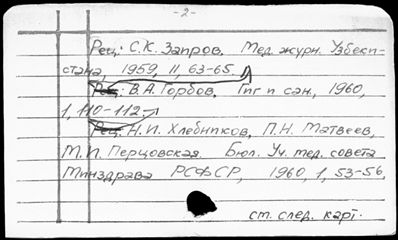 -2-
Рец: С.К. Запров. Мед. журн. Узбеки-
стана, 1959, 11, 63-65.
Рец: В.А. Горбов. Гиг и сан., 1960,
1, 110-112.
Рец: Н.И. Хлебников, П.Н. Матвеев,
М.И. Перцовская. Бюл. Уч. мед. совета
Минздрава РСФСР, 1960, 1, 53-56.
см. след. карт.